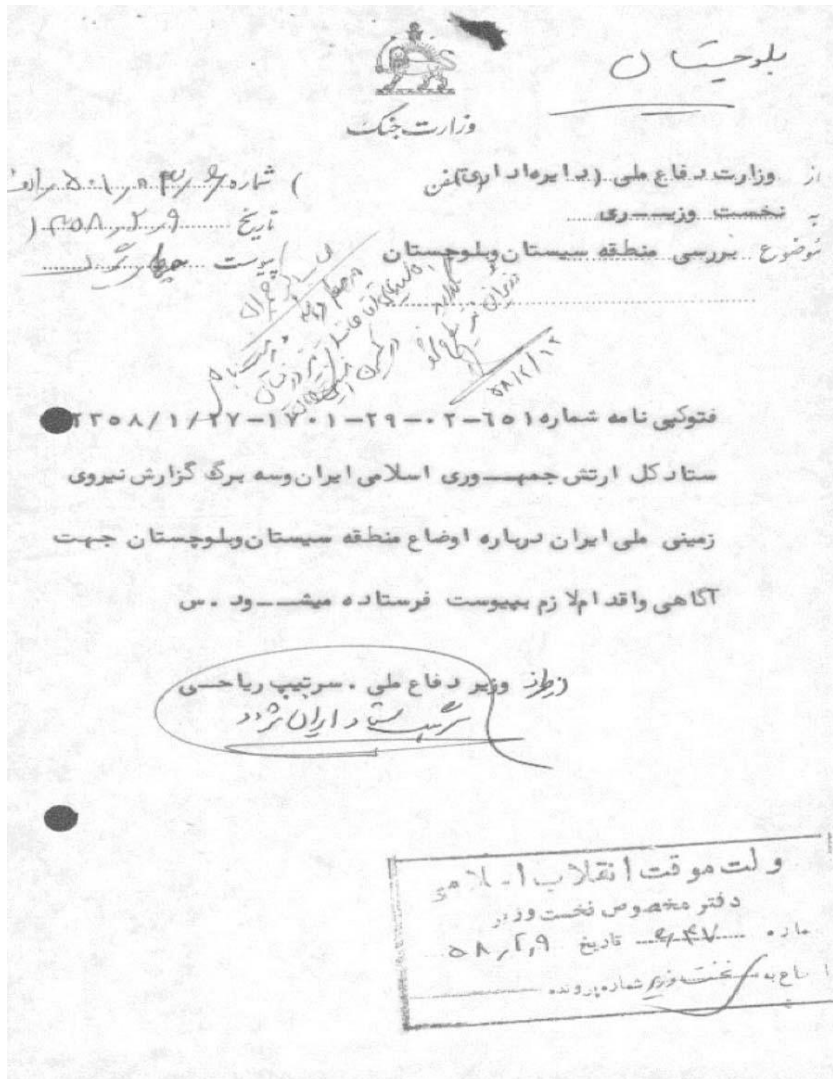 بلوچستان
وزارت جنگ
از وزارت دفاع ملی (دایره اداری) تلفن
شماره
به نخست وزیــری
تاریخ ۱۳۵۸٫۲٫۹
موضوع بررسی منطقه سیستان وبلوچستان
پیوست چهار برگ
۵۸/۲/۱۲
فتوکپی نامه شماره ۶۵۱-۰۲-۲۹-۱۷۰۱-۲۳۵۸/۱/۲۷
ستاد کل ارتش جمهــوری اسلامی ایران وسه برگ گزارش نیروی
زمینی ملی ایران درباره اوضاع منطقه سیستان وبلوچستان جهت
آگاهی واقدام لازم بپیوست فرستاده میشــود .س
از طرف وزیر دفاع ملی . سرتیپ ریاحــی
سرتیپ ستاد ایران نژاد
ولت موقت انقلاب اسلامی
دفتر مخصوص نخست وزیر
ماره ۶۴۷ تاریخ ۵۸٫۲٫۹
نخست وزیر شماره پرونده